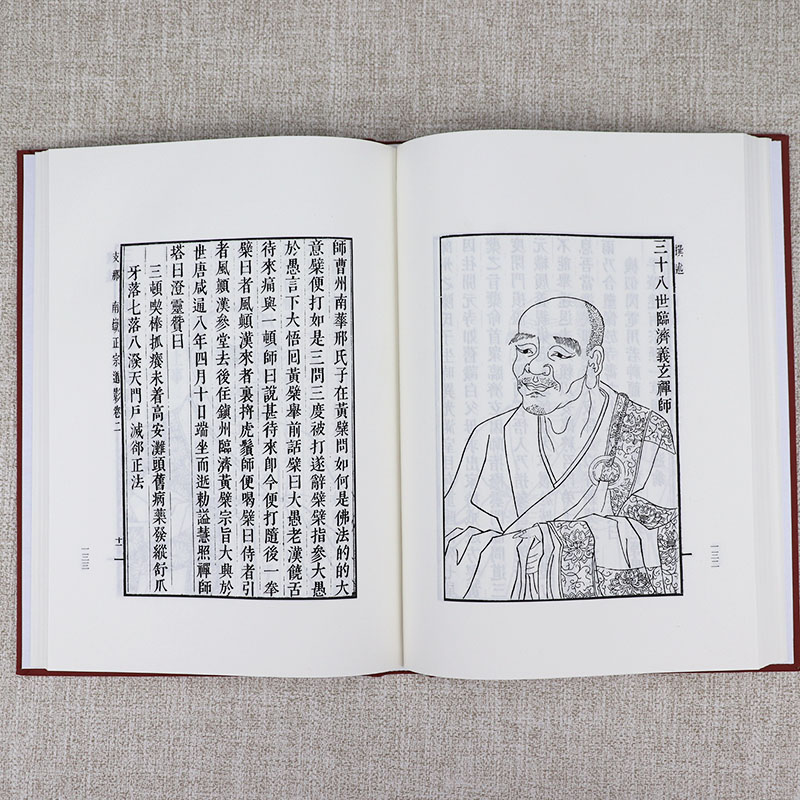 撰述
三十八世臨濟義玄禪師
師曹州南華邢氏子在黃檗問如何是佛法的的大
意檗便打如是三問三度被打遂辭檗檗指參大愚
於愚言下大悟回黃檗舉前話檗曰大愚老漢饒舌
待來痛與一頓師曰說甚待來即今便打隨後一拳
檗曰者風顛漢來者裏捋虎鬚師便喝檗曰侍者引
者風顛漢參堂去後住鎮州臨濟黃檗宗旨大興於
世唐咸通八年四月十日端坐而逝勅謚慧照禪師
塔曰澄靈贊曰
三頓喫棒抓癢未着高安灘頭舊病藥發縱舒爪
牙落七落八潑天門戶滅卻正法
支那
南嶽正宗道影卷二
十二